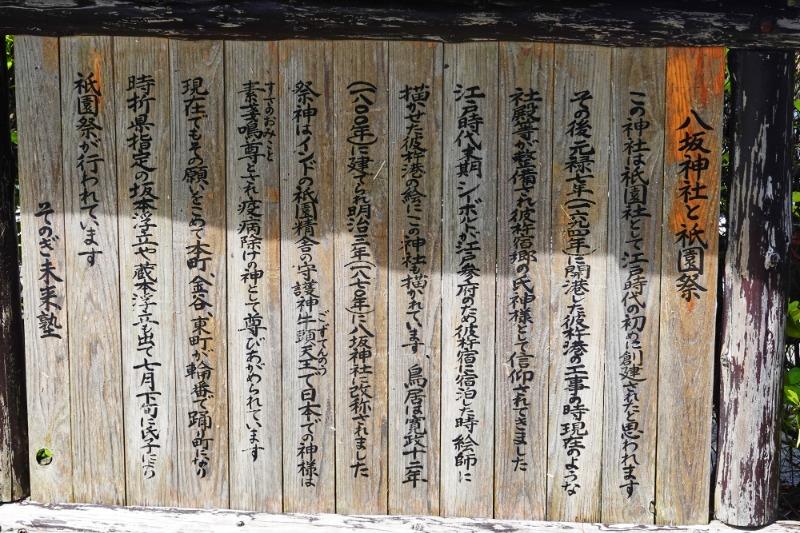 八坂神社と祇園祭
この神社は祇園社として江戸時代の初めに創建されたと思われます
その後元禄七年(一六九四年)に開港した彼杵港の工事の時現在のような
社殿等が整備され彼杵宿郷の氏神様として信仰されてきました
江戸時代末期、シーボルトが江戸参府のため彼杵宿に宿泊した時絵師に
描かせた彼杵港の絵にこの神社も描かれています、鳥居は寛政十二年
(一八〇〇年)に建てられ明治三年(一八七〇年)に八坂神社に改称されました
祭神はインドの祇園精舎の守護神牛頭天王で日本での神様は
ごずてんのう
素戔嗚尊とされ疫病除けの神として尊びあがめられています
すさのおのみこと
現在でもその願いをこめて本町、金谷、東町が輪番で踊り町になり
時折県指定の坂本浮立や蔵本浮立も出て七月下旬に氏子により
祇園祭が行われています
そのぎ未来塾